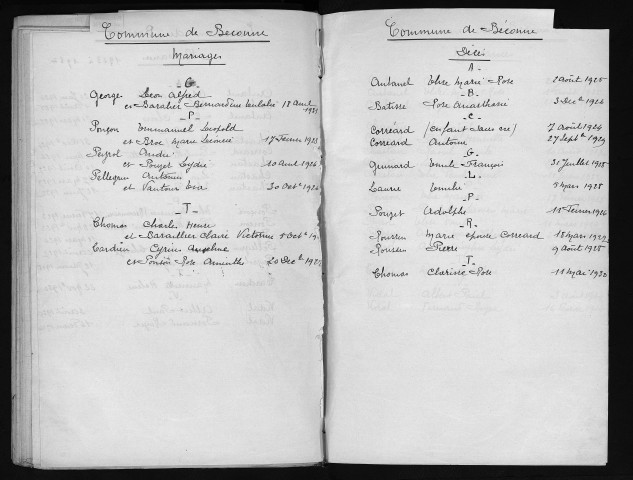 Commune de Béconne
Mariages
- G -
Georges Léon Alfred
et Baratier Bernardine Eulalie 18 Avril
- P -
Ponçon Emmanuel Léopold
et Broc Marie 17 Février 1923
Peyrol André
et Pouzet Lydie 10 Avril 1926
Pellegrin Antonin
et Vautour Eva 30 Octe
- T -
Thomas Charles Henri
et Barallier Claire Victorine Octe
Tardieu Cyrius Anselme
et Rose 20 Decbre
Commune de Béconne
Décès
- A -
Autanel Elise Marie Rose 2 Août 1925
- B -
Batisse Rose 3 Dece 1926
- C -
Corréard (enfant sans vie) 7 Août 1924
Corréard Antoine 27 Septe 1929
- G -
Guimard Emile François 31 Juillet 1925
- L -
Laurie Emilie 5 Mars 1928
- P -
Pouzet Adolphe Février 1926
- R -
Marie épouse Corréard 18 Mars
Pierre 9 Août 1928
- T -
Thomas Clarisse Rose 11 Mai 1930